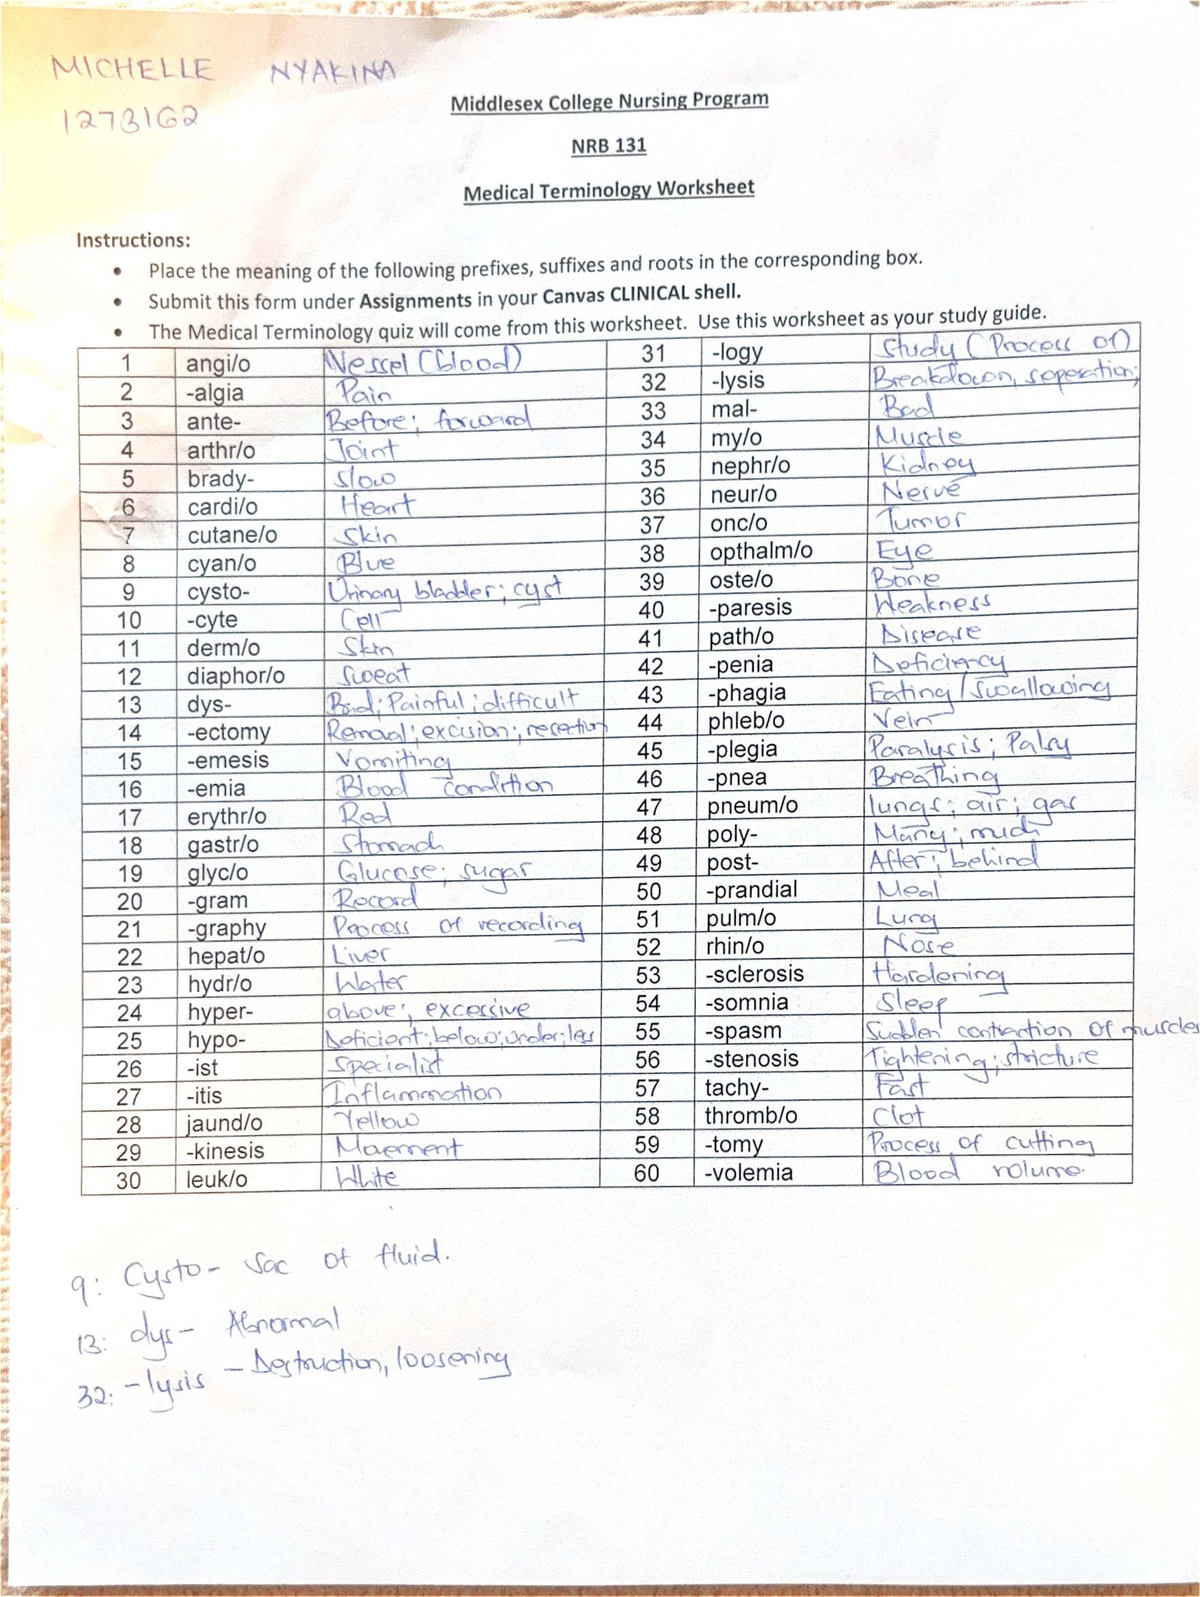 MICHELLE NYAKINA
1273162
Middlesex College Nursing Program
NRB 131
Medical Terminology Worksheet
Instructions:
• Place the meaning of the following prefixes, suffixes and roots in the corresponding box.
• Submit this form under Assignments in your Canvas CLINICAL shell.
• The Medical Terminology quiz will come from this worksheet. Use this worksheet as your study guide.
1 angi/o Vessel (blood) 31 -logy Study (Process of)
2 -algia Pain 32 -lysis Breakdown, seperation;
3 ante- Before; forward 33 mal- Bad
4 arthr/o Joint 34 my/o Muscle
5 brady- Slow 35 nephr/o Kidney
6 cardi/o Heart 36 neur/o Nerve
7 cutane/o Skin 37 onc/o Tumor
8 cyan/o Blue 38 opthalm/o Eye
9 cysto- Urinary bladder; cyst 39 oste/o Bone
10 -cyte Cell 40 -paresis Weakness
11 derm/o Skin 41 path/o Disease
12 diaphor/o Sweat 42 -penia Deficiency
13 dys- Bad; Painful; difficult 43 -phagia Eating/Swallowing
14 -ectomy Removal; excision; resection 44 phleb/o Vein
15 -emesis Vomiting 45 -plegia Paralysis; Palsy
16 -emia Blood condition 46 -pnea Breathing
17 erythr/o Red 47 pneum/o lungs; air; gas
18 gastr/o Stomach 48 poly- Many; much
19 glyc/o Glucose; sugar 49 post- After; behind
20 -gram Record 50 -prandial Meal
21 -graphy Process of recording 51 pulm/o Lung
22 hepat/o Liver 52 rhin/o Nose
23 hydr/o Water 53 -sclerosis Hardening
24 hyper- above; excessive 54 -somnia Sleep
25 hypo- Deficient; below; under; less 55 -spasm Sudden contraction of muscles
26 -ist Specialist 56 -stenosis Tightening; stricture
27 -itis Inflammation 57 tachy- Fast
28 jaund/o Yellow 58 thromb/o Clot
29 -kinesis Movement 59 -tomy Process of cutting
30 leuk/o White 60 -volemia Blood volume.
9: Cysto- Sac of fluid.
13: dys- Abnormal
32: -lysis - Destruction, loosening